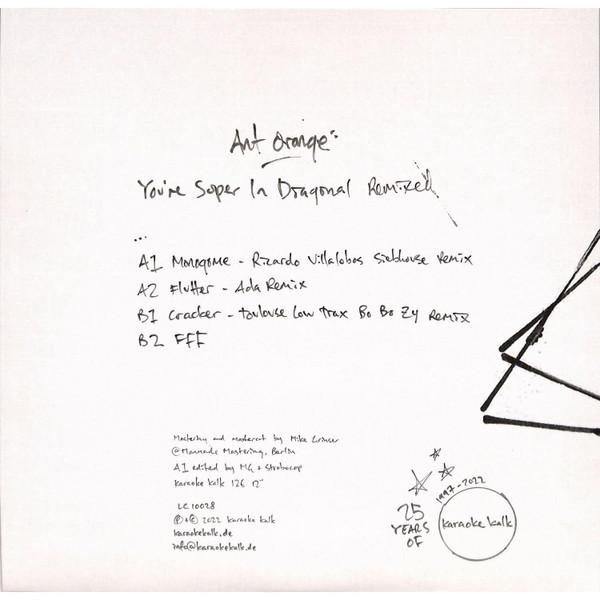 Ant Orange
You're Super In Diagonal Remixed
...
A1 Monogome - Ricardo Villalobos Siebhouse Remix
A2 Flutter - Ada Remix
B1 Cracker - Toulouse Low Trax Bo Bo Zy Remix
B2 FFF
Mastering and mastercut by Mike Grinser
@Manmade Mastering, Berlin
A1 edited by MG + Strobocop
Karaoke Kalk 126 12"
LC 10028
℗+© 2022 Karaoke Kalk
karaokekalk.de
info@karaokekalk.de
1997-2022
25
YEARS
OF
karaoke kalk